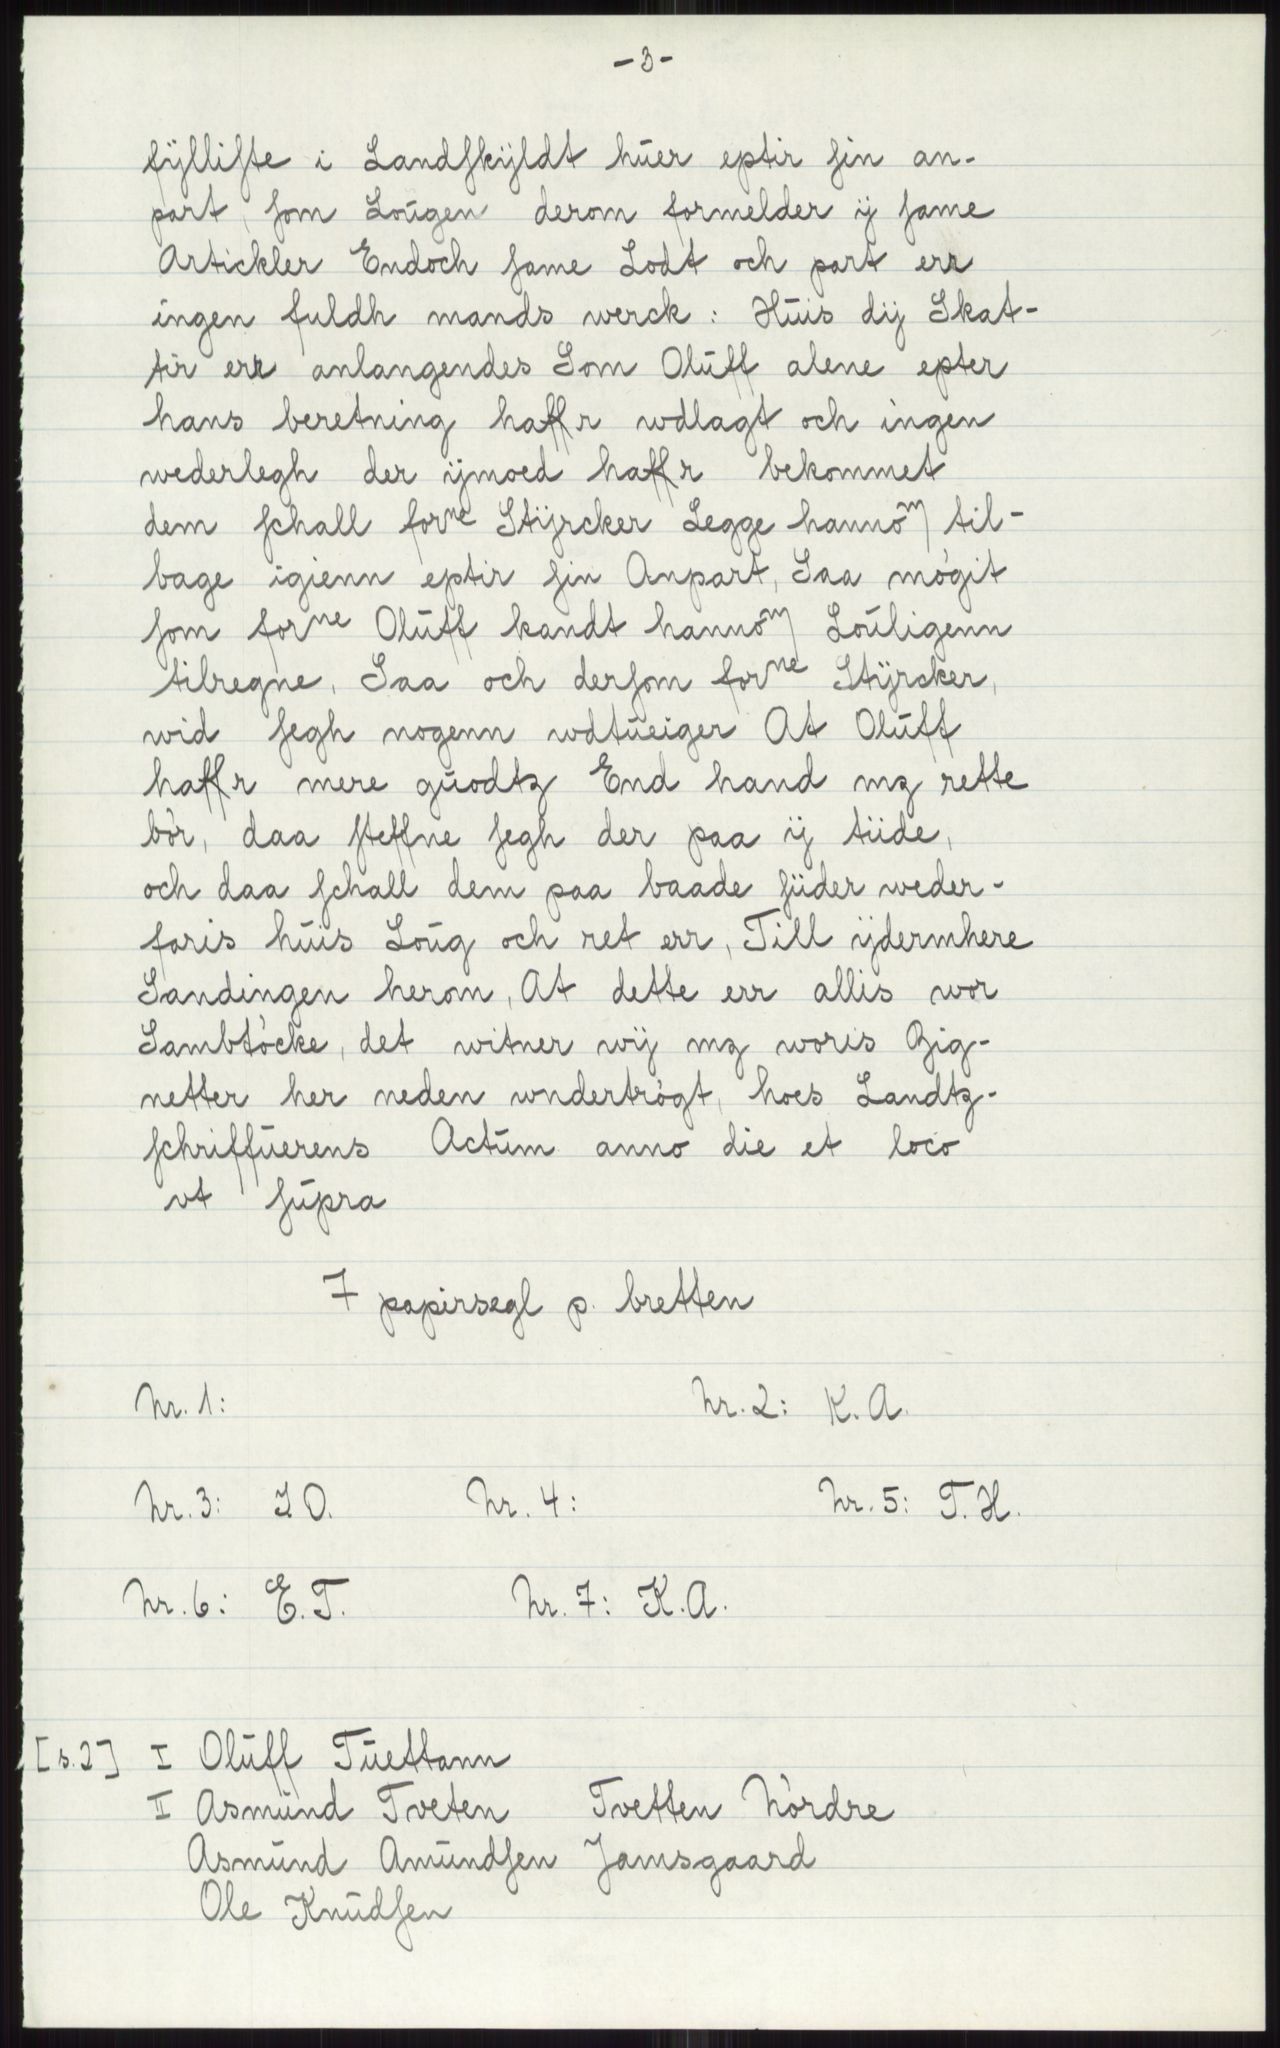 -3-
fÿlliste i Landskÿldt huer eptir sin an-
part, som Lougen derom formelder ÿ same
Artickler Endoch same Lodt och part err
ingen fuldh mands werck: Huis dÿ Skat-
tir err anlangendes Som Oluff alene epter
hans beretning haffr wdlagt och ingen
wederlegh der ÿmoed haffr bekommet
dem schall forne Stÿrcker Legge hannom til-
bage igienn eptir sin Anpart, Saa mögit
som forne Oluff kandt hannom Louligenn
tilregne, Saa och dersom forne Stÿrcker,
wid segh nogenn wdtueiger At Oluff
haffr mere guodtz End hand mz rette
bör, daa steffne segh der paa ÿ tiide,
och daa schall dem paa baade siider weder-
faris huis Loug och ret err, Till ÿdermhere
Sandingen herom, At dette err allis wor
Sambtöcke, det witner wÿ mz woris Zig-
netter her neden wndertrögt, hoes Landtz-
schriffuerens Actum anno die et loco
vt supra
7 papirsegl p. bretten
Nr. 1: Nr. 2: K. A.
Nr. 3: I O. Nr. 4: Nr. 5: T. H.
Nr. 6: E. T. Nr. 7: K. A.
[s. 2] I Oluff Tuettann
II Asmund Tveten Tvetten Nördre
Asmund Amundsen Jamsgaard
Ole Knudsen